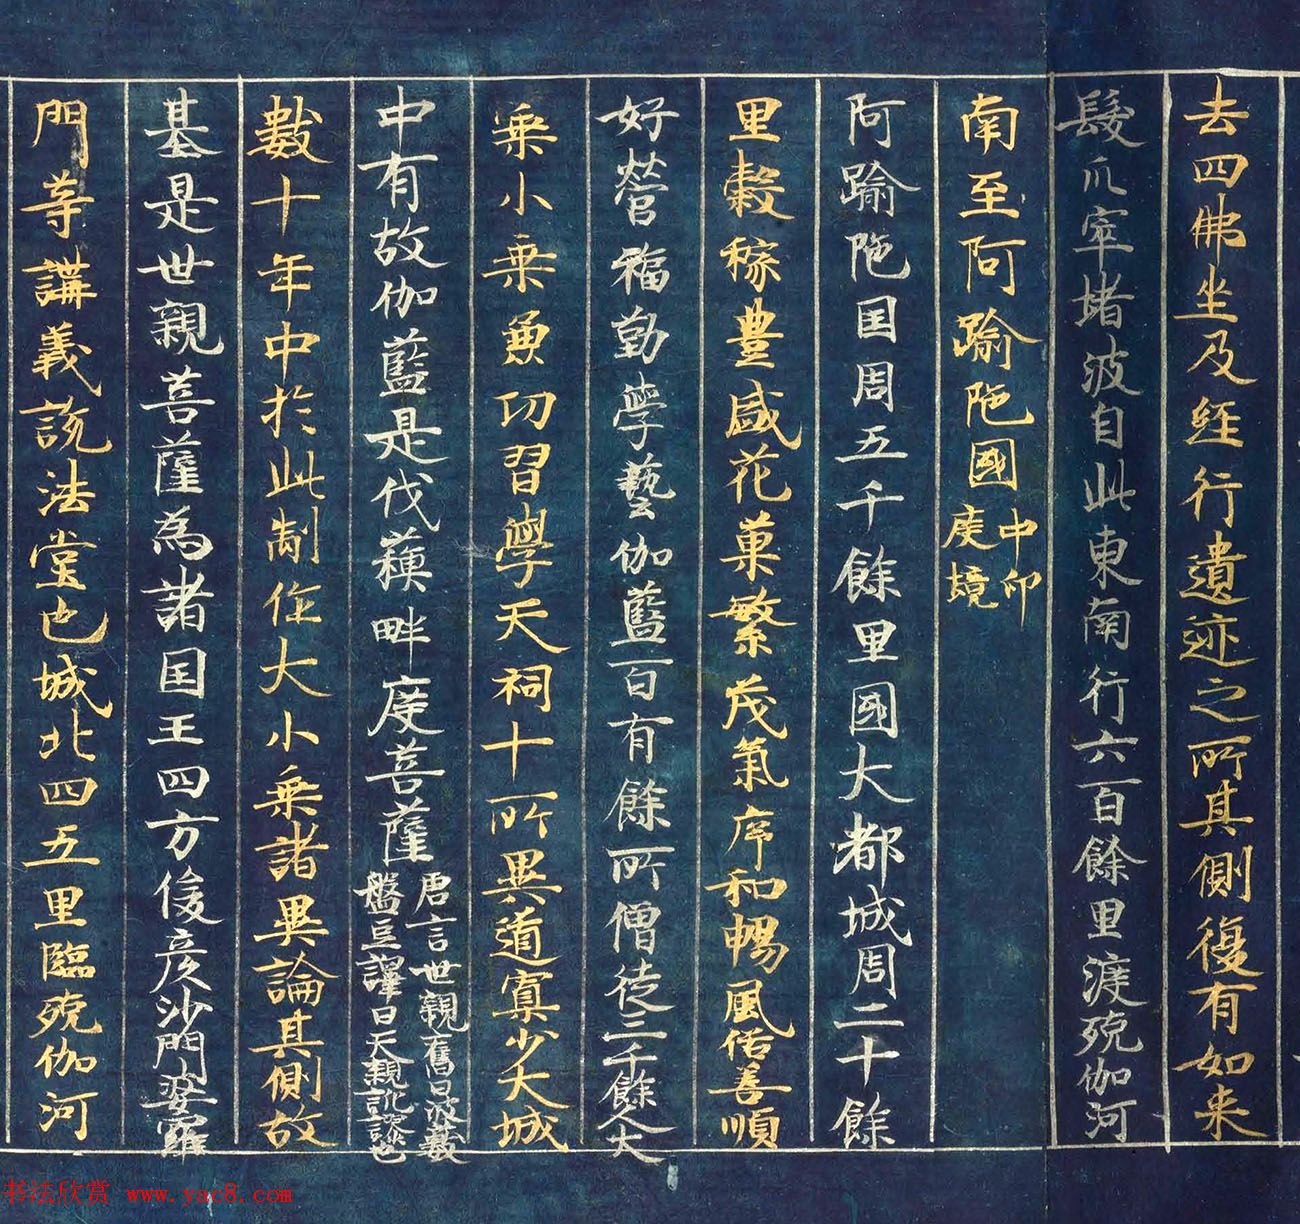 去四佛坐及経行遺迹之所其側復有如来
髮爪窣堵波自此東南行六百餘里渡殑伽河
南至阿踰陁國中印度境
阿踰陁囯周五千餘里國大都城周二十餘
里穀稼豊盛花菓繁茂氣序和暢風俗善順
好營福勤學藝伽藍百有餘所僧徒三千餘人大
乗小乗兼切習學天祠十所異道寡少大城
中有故伽藍是伐蘓畔度菩薩唐言世親舊曰波藪盤豆譯曰天親訛謬也
數十年中於此制作大小乗諸異論其側故
基是世親菩薩為諸囯王四方俊彦沙門婆羅
門等講義說法堂也城北四五里臨殑伽河
书法欣赏 www.yac8.com